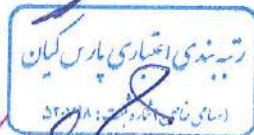 رتبه‌بندی اعتباری پارس کیان
(سهامی خاص) شماره ثبت: